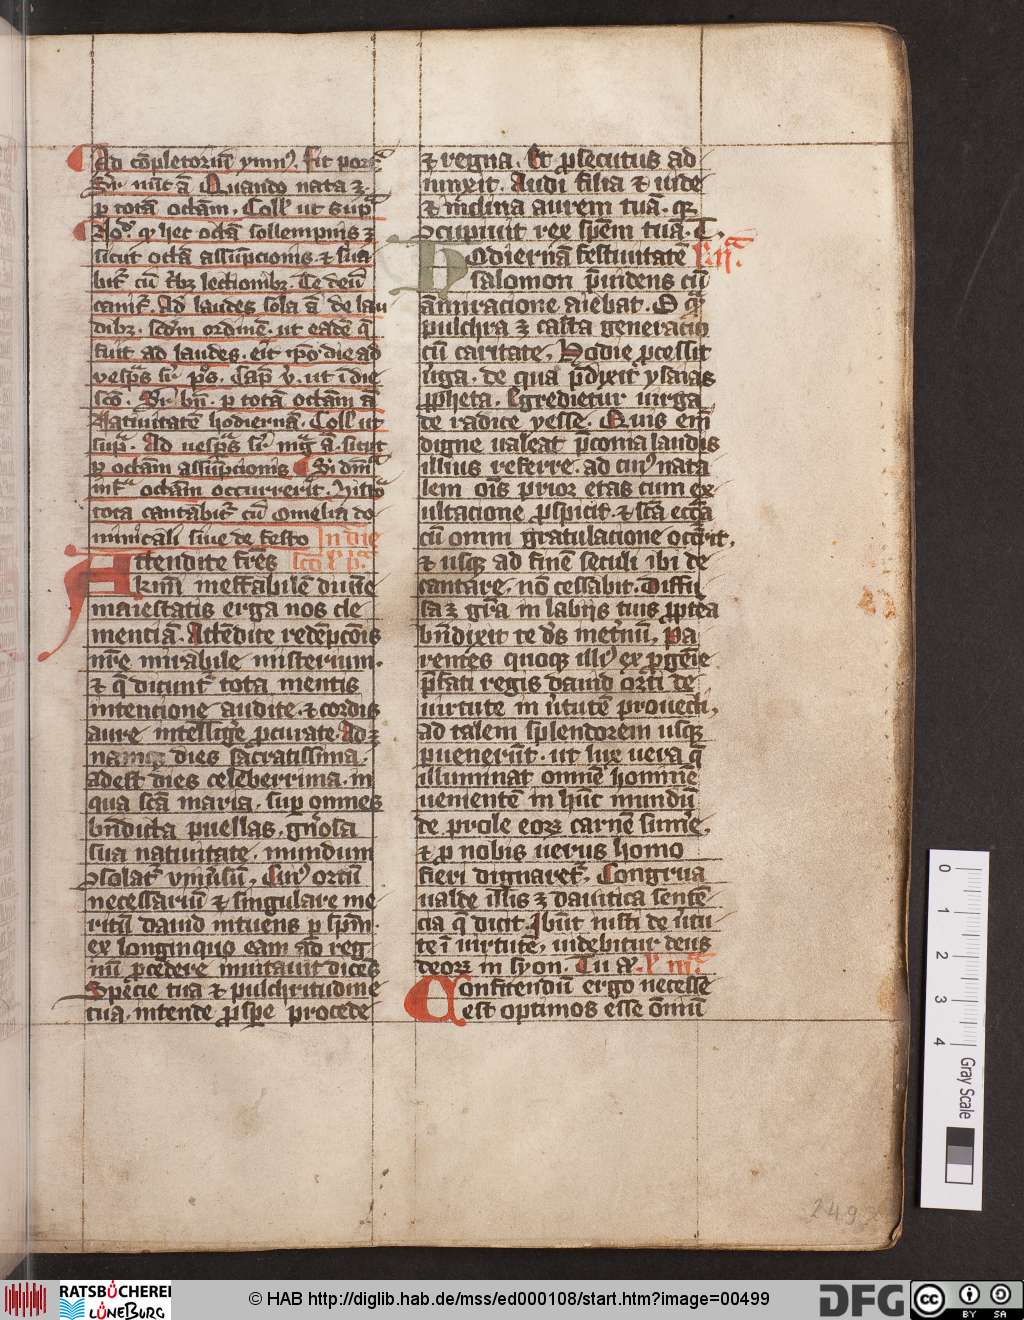 Ad cōpletoriū ymnꝰ. fit porͣ
Sr̄ nūc ā Quando nata ꝫ.
ꝑ totā octām. Coll̄ ut supͣ
No.ͣ ꝙ hec octā sollempnis ꝫ
sicut octā assūpcionis. ⁊ s̄ua
bitͬ cū tͥbꝫ lectionibꝫ. Te deū
canitͬ. Ad laudes sola ā de lau
dibꝫ. scd̄m ordinē. ut eadē q̄
fuit ad laudes. erit ip̄o die ad
vesꝑas. Cap̄ ut ī die
scō. ꝑ totā octām ā
Natiuitatē hodiernā. Coll̄ ut
supͣ. Ad uesꝑas sicut
ꝑ octām assūpcionis Si dnī
infͣ octām occurrerit. hystoͣ
tota cantabitͬ cū omelia do
minicali siue de festo In die
Attendite frēs scō l̓ pͣ
k̄mi ineffabilē diuīe
maiestatis erga nos cle
menciā. Attēdite redēpcōis
nr̄e mirabile misterium.
⁊ q̄ dicuntͬ tota mentis
intencione audite. ⁊ cordis
aure intelligē ꝓcurate. Adꝫ
namꝗ dies sacratissima.
adest dies celeberrima. in
qua scā maria. suꝑ omnes
bn̄dicta puellas. gn̄osa
sua natiuitate. mundum
ꝯsolatͬ vniūsū. Cuiꝰ ortū
necessariū ⁊ singulare me
ritū dauid intuens ꝑ sp̄m.
ex longinquo eam ad reg
nū ꝓcedere inuitauit dicēs
Specie tua ⁊ pulchritudine
tua. intende ꝓspe procede
⁊ regna. Et ꝓsecutus ad
iunxit. Audi filia ⁊ uide
⁊ inclina aurem tuā. qꝫ
ꝯcupiuit rex spēm tuā. T.
Hodiernā festiuitatē l̓ ijͣ.
salomon p̄uidens cū
āmiracione aiebat. O qͣ
pulchra ꝫ casta generacio
cū caritate. Hodie ꝓcessit
uirga. de qua p̄dixit ysaias
ꝓpheta. Egredietur uirga
de radice yesse. Quis em̄
digne ualeat p̄conia laudis
illius referre. ad cuiꝰ nata
lem oīs prior etas cum ex
ultacione ꝓspicit. ⁊ scā eccīa
cū omni gratulacione occ̄rit,
⁊ usqꝫ ad finē seculi ibi de
cantare. nō cessabit. Diffu
sa ꝫ gr̄a in labijs tuis ꝓptea
bn̄dixit te dꝰs ineẗnū. Pa
rentes quoqꝫ illiꝰ ex ꝓgeīe
p̄fati regis dauid orti de
uirtute in ūtutē prouecti,
ad talem splendorem usqꝫ
ꝑuenerūt. ut lux uera q̄
illuminat omnē hominē
uenientē in hūc mundū
de prole eoꝝ carnē sumē,
⁊ ꝑ nobis uerus homo
fieri dignaretͬ. Congrua
ualde illis ꝫ dauitica sentē
cia q̄ dicit. Ibūt iusti de uirtu
te ī uirtutē, uidebitur deus
deoꝝ in syon. Tu aū. l̓ iijͣ
Confitendū ergo necesse
est optimos esse omniū
249
0 1 2 3 4 Gray Scale
RATSBÜCHEREI LÜNEBURG
© HAB http://diglib.hab.de/mss/ed000108/start.htm?image=00499
DFG
cc BY SA